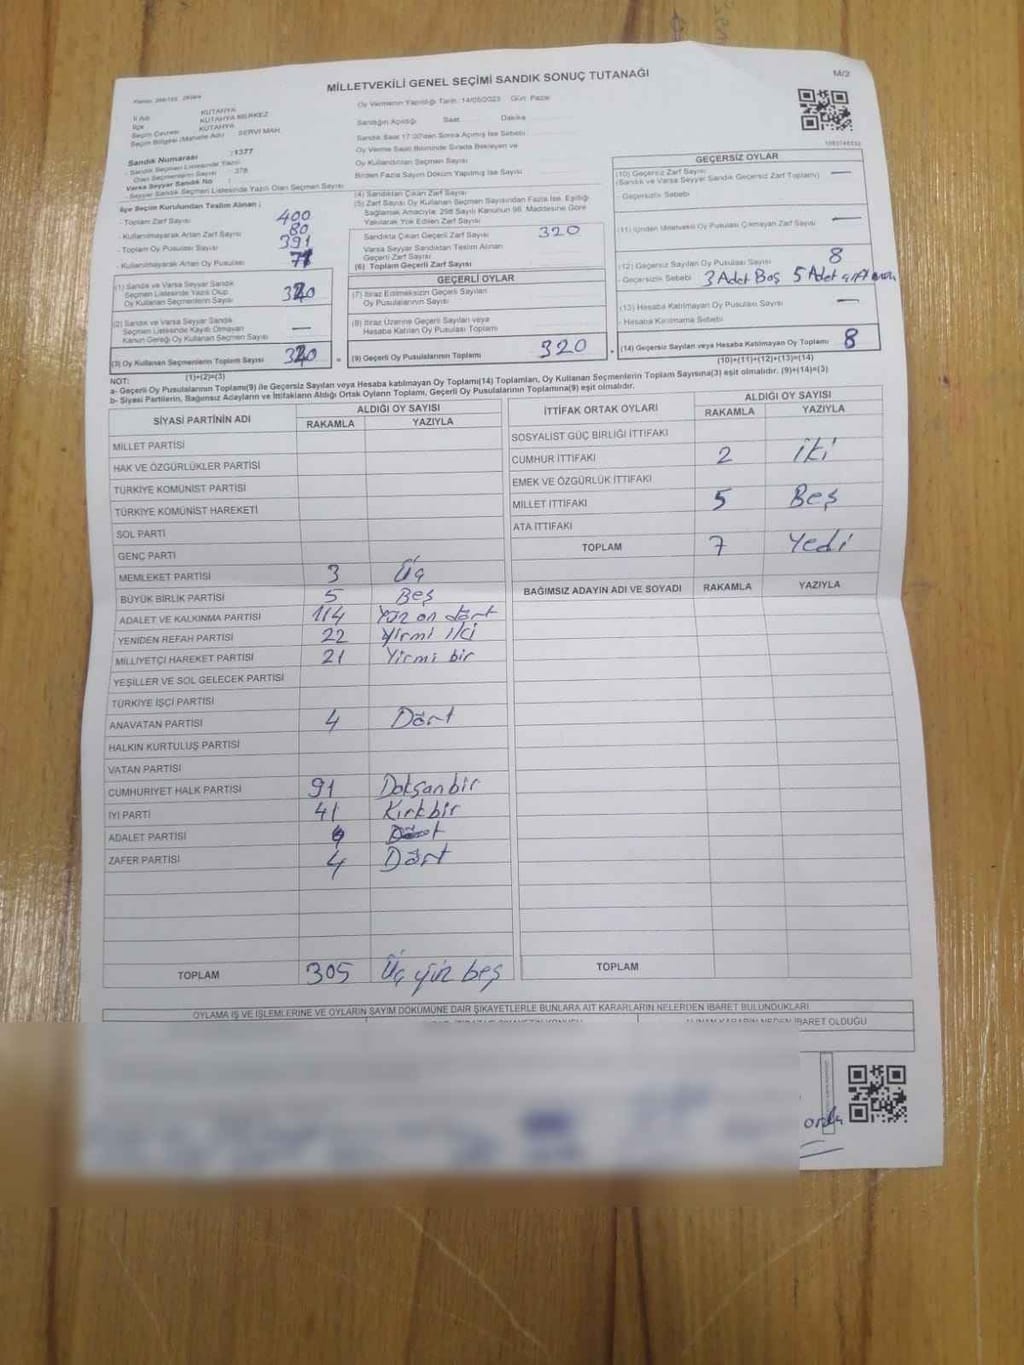 MİLLETVEKİLİ GENEL SEÇİMİ SANDIK SONUÇ TUTANAĞI
M/2
Oy Vermenin Yapıldığı Tarih: 14/05/2023 Gün: Pazar
İl Adı KÜTAHYA
İlçe KÜTAHYA MERKEZ
Seçim Çevresi KÜTAHYA
Seçim Bölgesi (Mahalle Adı) SERVİ MAH.
Sandık Numarası :1377
- Sandık Seçmen Listesinde Yazılı
Olan Seçmenlerin Sayısı : 378
Varsa Seyyar Sandık No :
- Seyyar Sandık Seçmen Listesinde Yazılı Olan Seçmen Sayısı
Sandığın Açıldığı Saat Dakika
Sandık Saat 17:00'den Sonra Açılmış İse Sebebi
Oy Verme Saati Bitiminde Sırada Bekleyen ve
Oy Kullandırılan Seçmen Sayısı
Birden Fazla Sayım Döküm Yapılmış İse Sayısı
İlçe Seçim Kurulundan Teslim Alınan ;
- Toplam Zarf Sayısı 400
- Kullanılmayarak Artan Zarf Sayısı 80
- Toplam Oy Pusulası Sayısı 391
- Kullanılmayarak Artan Oy Pusulası
(1) Sandık ve Varsa Seyyar Sandık
Seçmen Listesinde Yazılı Olup
Oy Kullanan Seçmenlerin Sayısı
(2) Sandık ve Varsa Seyyar Sandık
Seçmen Listesinde Kayıtlı Olmayan
Kanun Gereği Oy Kullanan Seçmen Sayısı —
(3) Oy Kullanan Seçmenlerin Toplam Sayısı
(1)+(2)=(3)
(4) Sandıktan Çıkan Zarf Sayısı
(5) Zarf Sayısı Oy Kullanan Seçmen Sayısından Fazla İse, Eşitliği
Sağlamak Amacıyla, 298 Sayılı Kanunun 98. Maddesine Göre
Yakılarak Yok Edilen Zarf Sayısı
Sandıkta Çıkan Geçerli Zarf Sayısı 320
Varsa Seyyar Sandıktan Teslim Alınan
Geçerli Zarf Sayısı
(6) Toplam Geçerli Zarf Sayısı
GEÇERLİ OYLAR
(7) İtiraz Edilmeksizin Geçerli Sayılan
Oy Pusulalarının Sayısı
(8) İtiraz Üzerine Geçerli Sayılan veya
Hesaba Katılan Oy Pusulası Toplamı
(9) Geçerli Oy Pusulalarının Toplamı 320
GEÇERSİZ OYLAR
(10) Geçersiz Zarf Sayısı
(Sandık ve Varsa Seyyar Sandık Geçersiz Zarf Toplamı) —
- Geçersizlik Sebebi
(11) İçinden Milletvekili Oy Pusulası Çıkmayan Zarf Sayısı —
(12) Geçersiz Sayılan Oy Pusulası Sayısı 8
- Geçersizlik Sebebi 3 Adet Boş 5 Adet
(13) Hesaba Katılmayan Oy Pusulası Sayısı —
- Hesaba Katılmama Sebebi
(14) Geçersiz Sayılan veya Hesaba Katılmayan Oy Toplamı 8
(10)+(11)+(12)+(13)=(14)
NOT:
a- Geçerli Oy Pusulalarının Toplamı(9) ile Geçersiz Sayılan veya Hesaba katılmayan Oy Toplamı(14) Toplamları, Oy Kullanan Seçmenlerin Toplam Sayısına(3) eşit olmalıdır. (9)+(14)=(3)
b- Siyasi Partilerin, Bağımsız Adayların ve İttifakların Aldığı Ortak Oyların Toplamı, Geçerli Oy Pusulalarının Toplamına(9) eşit olmalıdır.
SİYASİ PARTİNİN ADI
ALDIĞI OY SAYISI
RAKAMLA YAZIYLA
MİLLET PARTİSİ
HAK VE ÖZGÜRLÜKLER PARTİSİ
TÜRKİYE KOMÜNİST PARTİSİ
TÜRKİYE KOMÜNİST HAREKETİ
SOL PARTİ
GENÇ PARTİ
MEMLEKET PARTİSİ 3 Üç
BÜYÜK BİRLİK PARTİSİ 5 Beş
ADALET VE KALKINMA PARTİSİ 114 Yüz on dört
YENİDEN REFAH PARTİSİ 22 Yirmi iki
MİLLİYETÇİ HAREKET PARTİSİ 21 Yirmi bir
YEŞİLLER VE SOL GELECEK PARTİSİ
TÜRKİYE İŞÇİ PARTİSİ
ANAVATAN PARTİSİ 4 Dört
HALKIN KURTULUŞ PARTİSİ
VATAN PARTİSİ
CUMHURİYET HALK PARTİSİ 91 Doksan bir
İYİ PARTİ 41 Kırk bir
ADALET PARTİSİ
ZAFER PARTİSİ 4 Dört
TOPLAM 305 Üç yüz beş
İTTİFAK ORTAK OYLARI
ALDIĞI OY SAYISI
RAKAMLA YAZIYLA
SOSYALİST GÜÇ BİRLİĞİ İTTİFAKI
CUMHUR İTTİFAKI 2 iki
EMEK VE ÖZGÜRLÜK İTTİFAKI
MİLLET İTTİFAKI 5 Beş
ATA İTTİFAKI
TOPLAM 7 Yedi
BAĞIMSIZ ADAYIN ADI VE SOYADI RAKAMLA YAZIYLA
TOPLAM
OYLAMA İŞ VE İŞLEMLERİNE VE OYLARIN SAYIM DÖKÜMÜNE DAİR ŞİKAYETLERLE BUNLARA AİT KARARLARIN NELERDEN İBARET BULUNDUKLARI
ALINAN KARARIN NEDEN İBARET OLDUĞU